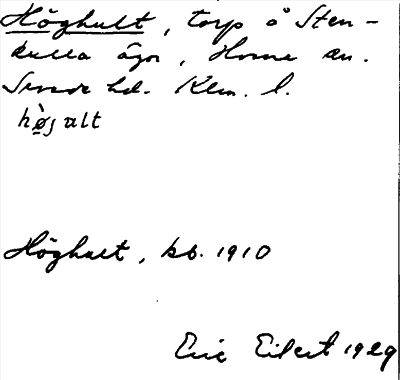 Höghult, torp å Sten-
kulla ägor, Horns sn.
Sevede hd. Klm. l.
hø̀galt
Höghult, kb. 1910
Eric Eilert 1929